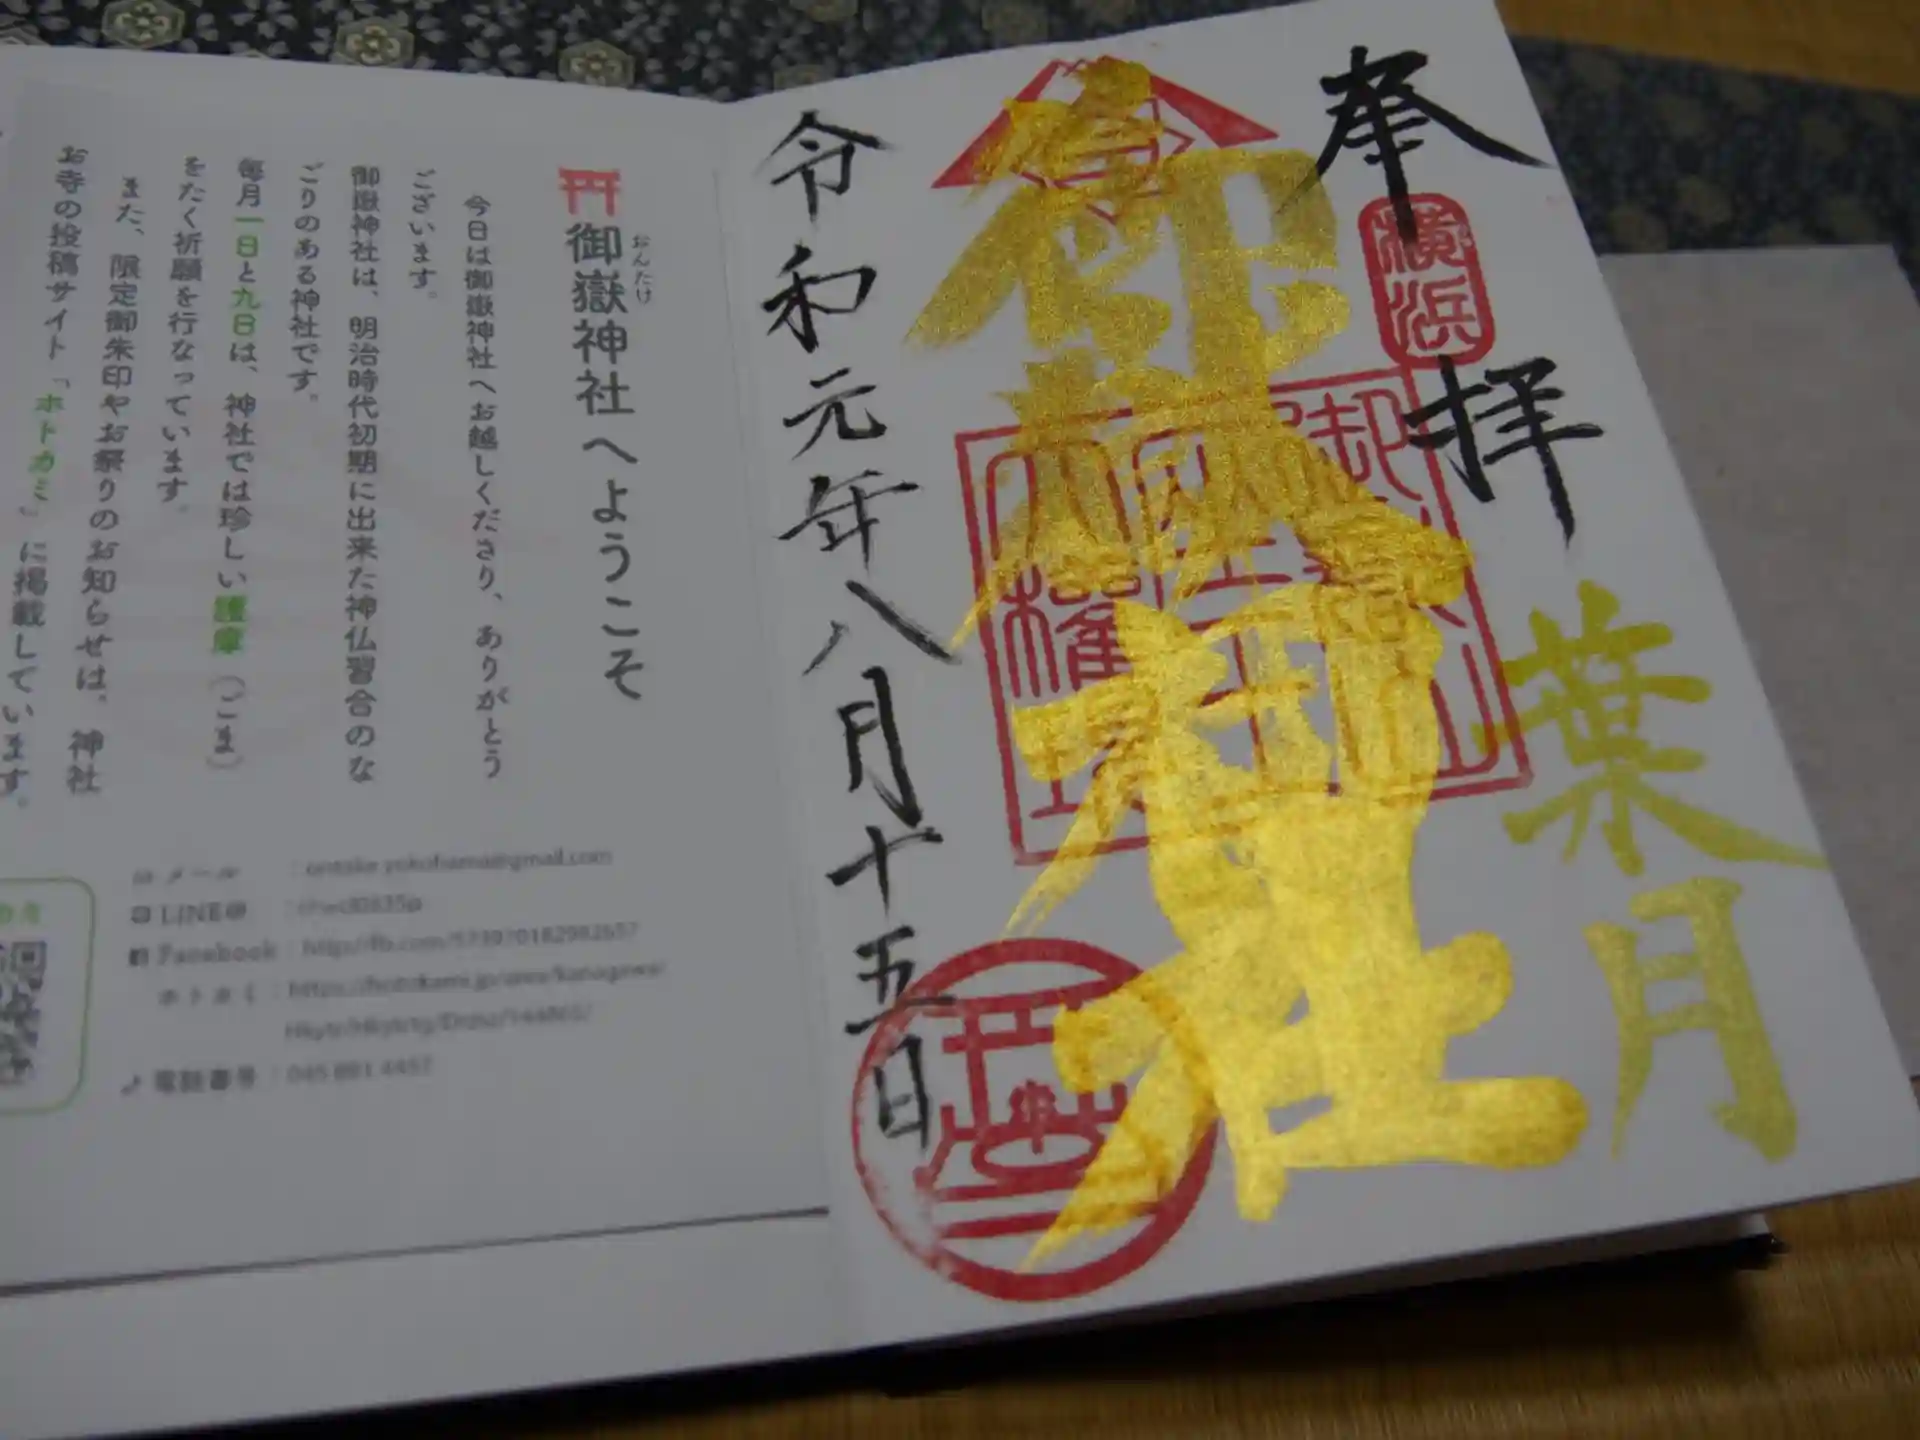 奉拝
横浜
葉月
御嶽神社
令和元年八月十五日
御嶽神社へようこそ
おんたけ
今日は御嶽神社へお越しくださり、ありがとう
ございます。
御嶽神社は、明治時代初期に出来た神仏習合のな
ごりのある神社です。
毎月一日と九日は、神社では珍しい護摩(ごま)
をたく祈願を行なっています。
また、限定御朱印やお祭りのお知らせは、神社
お寺の投稿サイト「ホトカミ」に掲載しています。
メール : ontake.yokohama@gmail.com
LINE@
Facebook : http://fb.com/573970182982657
ホトカミ : https://hotokami.jp/area/kanagawa/
電話番号 : 045 881 4457